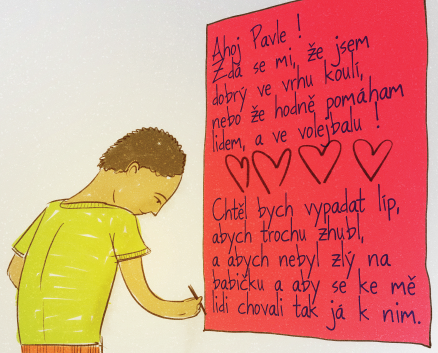 Ahoj Pavle !
Zdá se mi, že jsem
dobrý ve vrhu koulí,
nebo že hodně pomáham
lidem, a ve volejbalu !
Chtěl bych vypadat líp,
abych trochu zhubl,
a abych nebyl zlý na
babičku a aby se ke mě
lidi chovali tak já k nim.